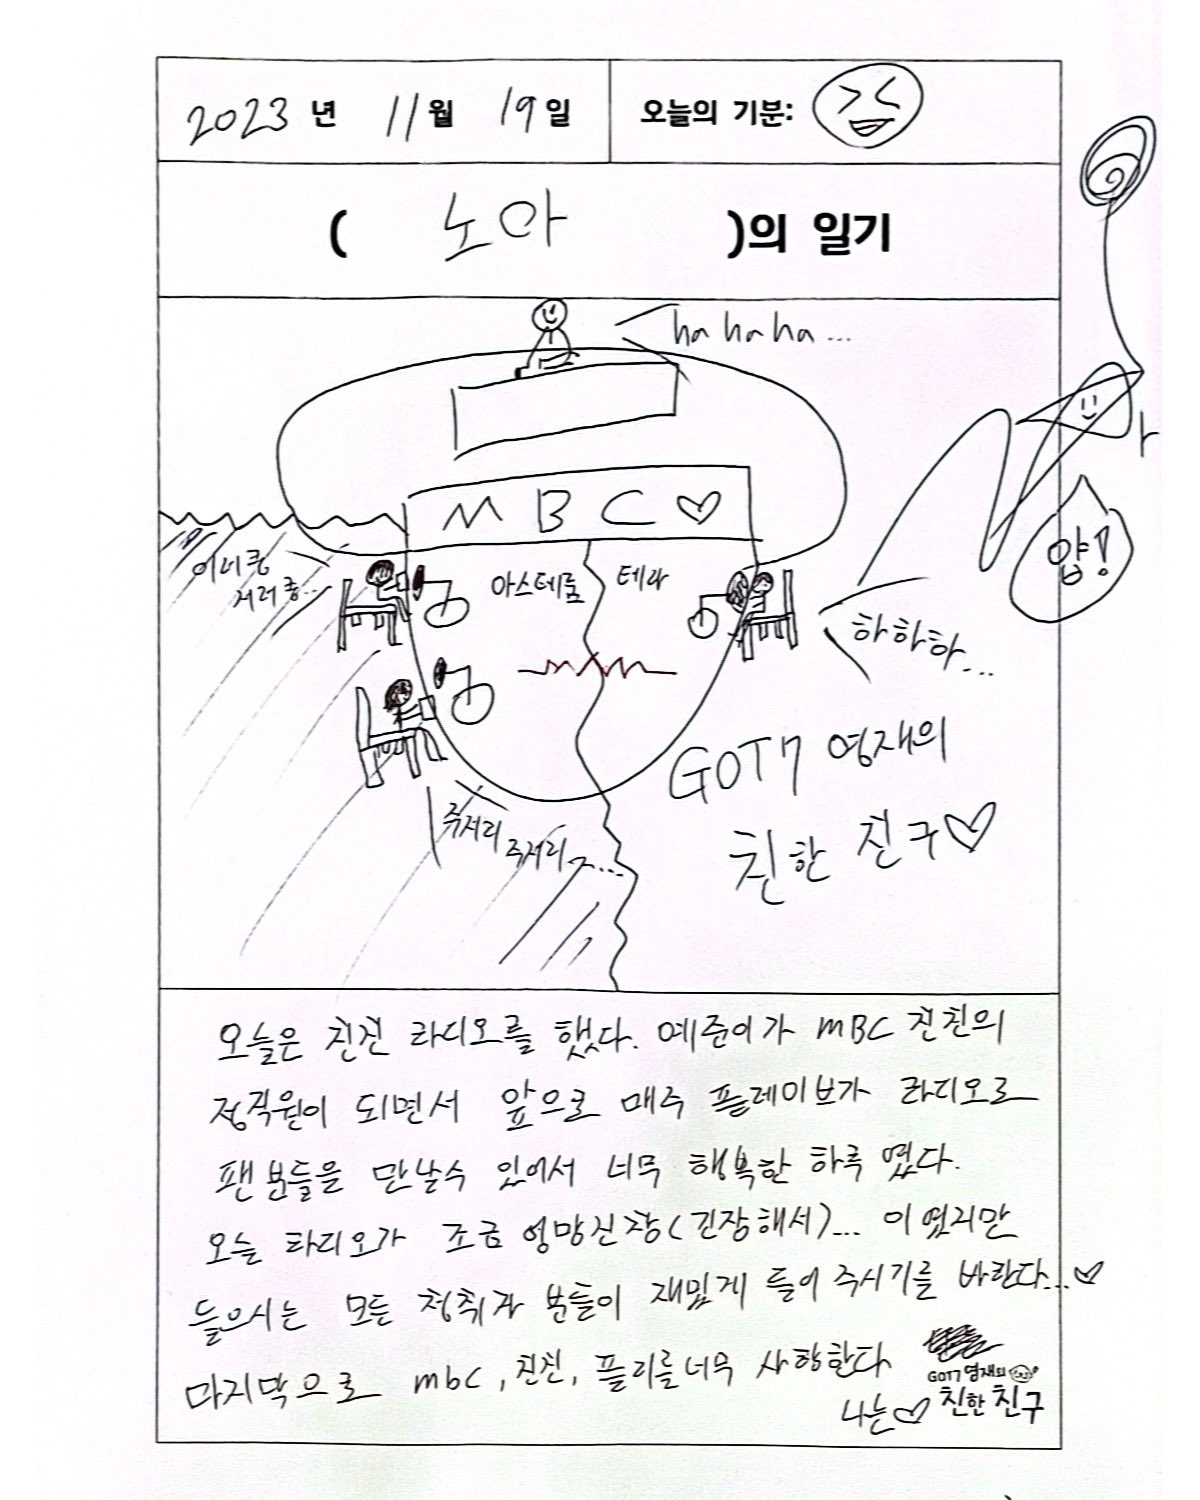 2023 년 11 월 19 일 오늘의 기분:
( 노아 )의 일기
ha ha ha ...
MBC♡
이러쿵
저러쿵...
아스테룸 테라
얍!
하하하...
GOT7 영재의
친한 친구♡
주저리
주저리~...
오늘은 친친 라디오를 했다. 예준이가 MBC 친친의
정직원이 되면서 앞으로 매주 플레이브가 라디오로
팬분들을 만날수 있어서 너무 행복한 하루 였다.
오늘 라디오가 조금 엉망진창(긴장해서)... 이 였지만
들으시는 모든 청취자 분들이 재밌게 들어 주시기를 바란다...♡
마지막으로 mbc, 친친, 플리를 너무 사랑한다
GOT7 영재의
나는♡ 친한 친구